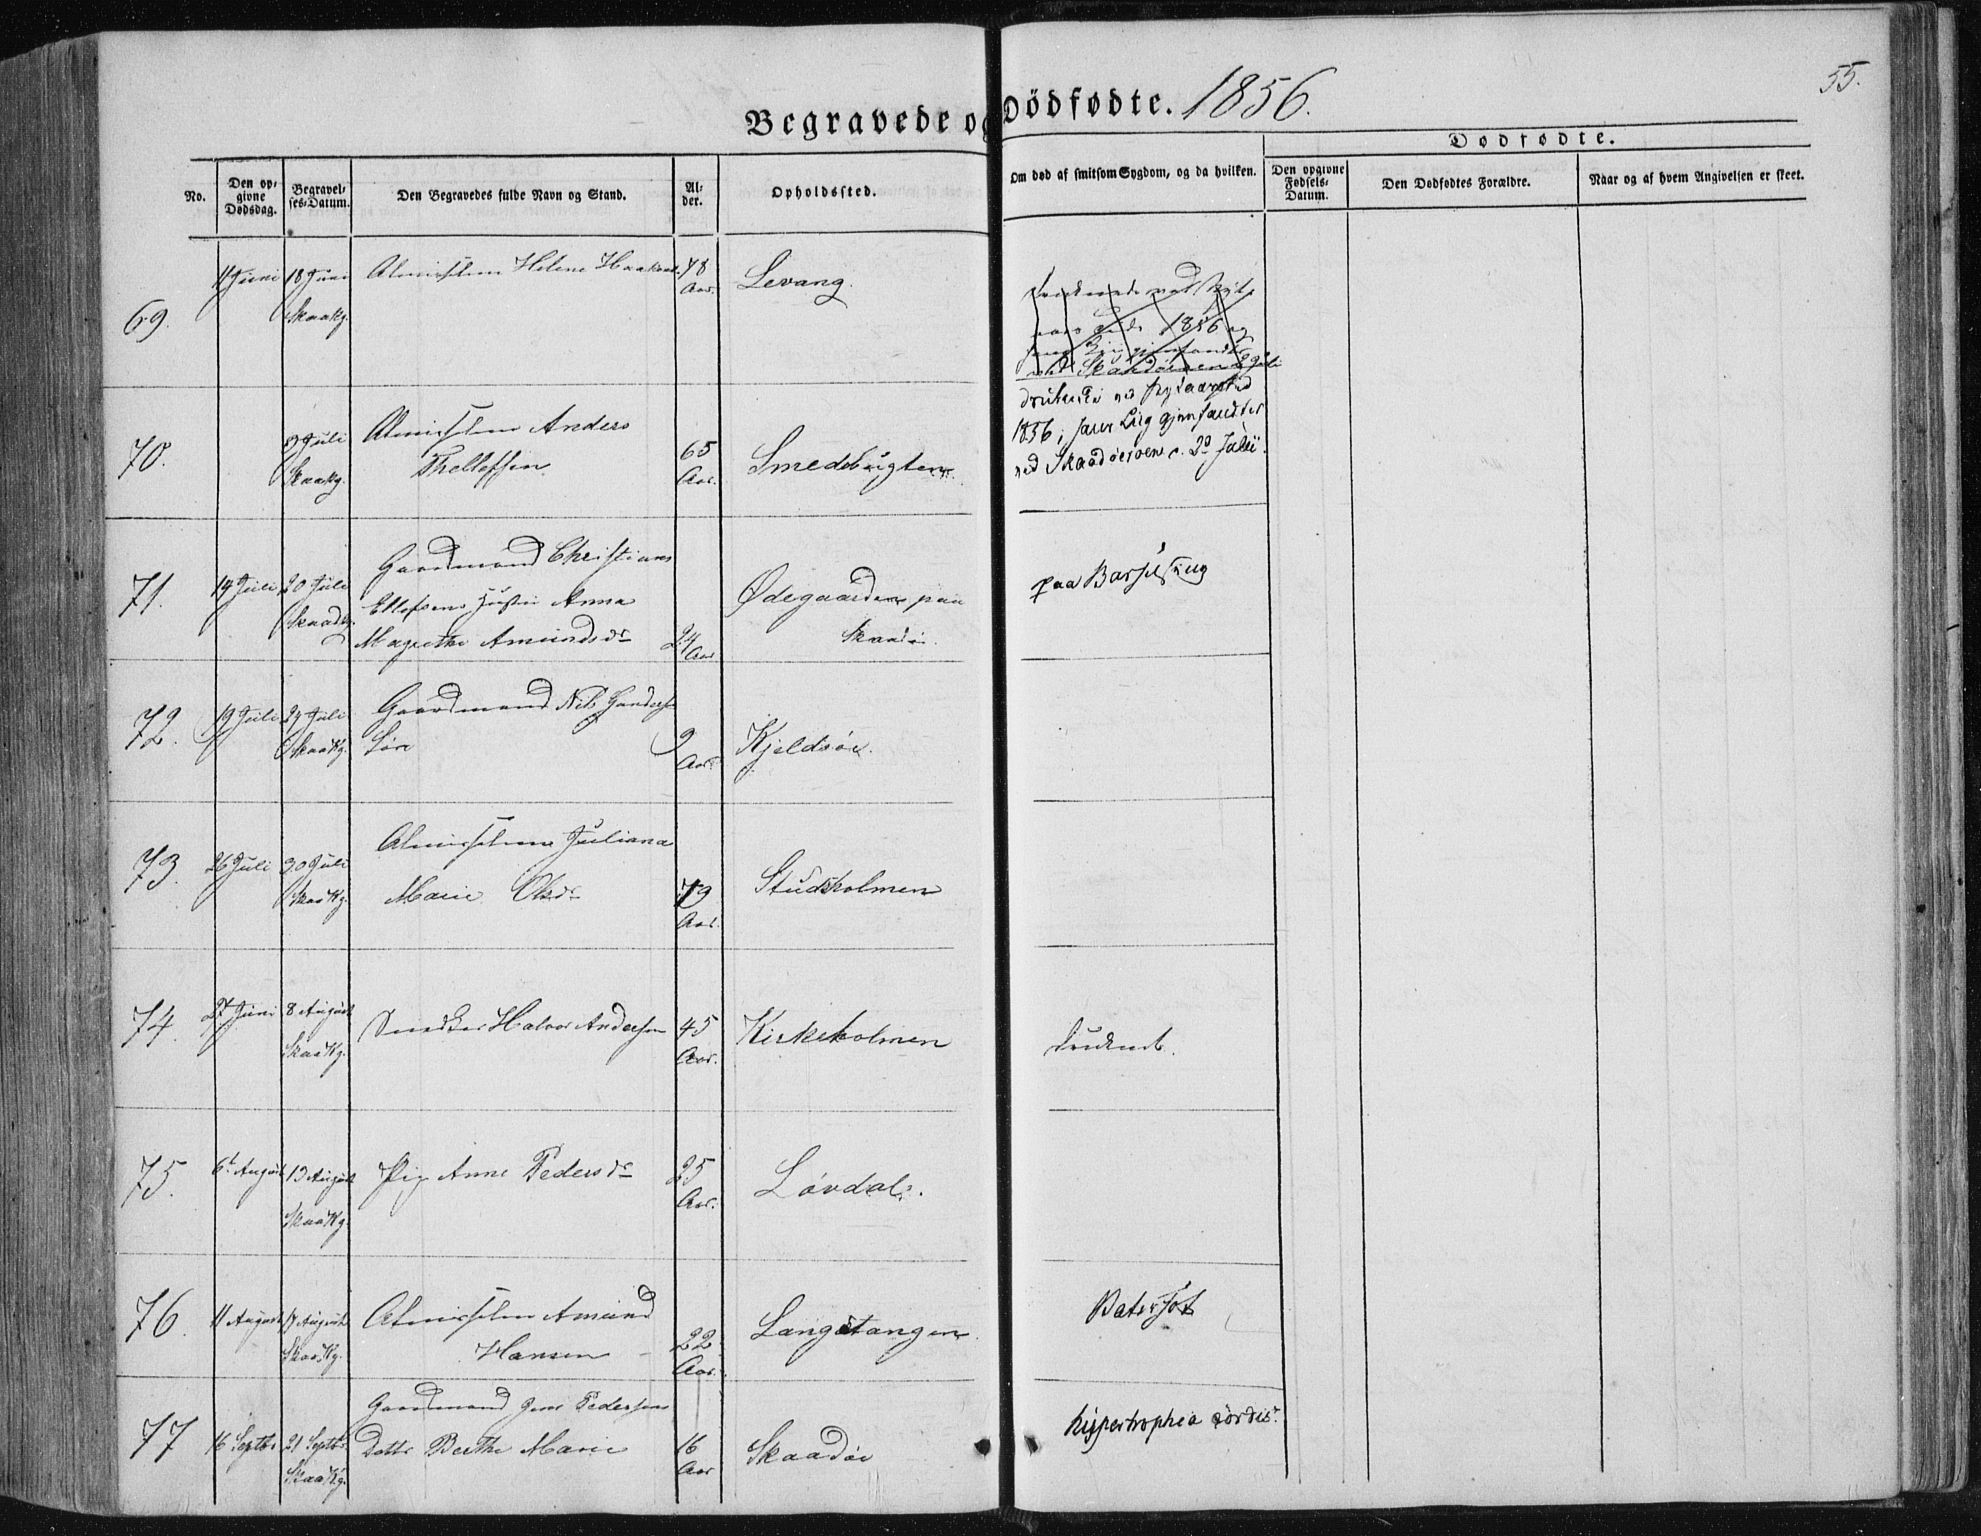 55.
Begravede og Dödfødte. 1856.
Dødfødte.
No.
Den op-
givne
Dødsdag.
Begravel-
ses-Datum.
Den Begravedes fulde Navn og Stand.
Al-
der.
Opholdssted.
Om død af smitsom Sygdom, og da hvilken.
Den opgivne
Fødsels-
Datum.
Den Dødfødtes Forældre.
Naar og af hvem Angivelsen er skeet.
69.
11 Juni
18 Juni
Skaakg.
Almisselem Helene
78
Aar.
Levang.
1856
70.
9 Juli
Skaakg.
Almisselem Anders
Thellefsen
65
Aar.
Smedsbugten.
1856; Liig gjenfandtes
ved Juli.
71.
14 Juli
20 Juli
Gaardmand Christians
Ellefsens Hustru Anna
Magrethe Amundsdr
24
Aar
Ødegaarden paa
Skaadø.
paa Barselseng
72.
19 Juli
24 Juli
Skaakg.
Gaardmand Nils
Søn
9
Aar.
Kjeldsøe.
73.
26 Juli
30 Juli
Skaakg.
Almisselem Juliana
Marie Olsdr
79
Aar.
Studsholmen
74.
27 Juni
8 August
Skaakg.
Snedker Halvor Andersen
45
Aar.
Kirkeholmen
druknet.
75.
6t August
13 August
Skaakg.
Pig Anne Pedersdr
25
Aar.
Løvdal.
76.
11 August
17 August
Skaakg.
Almisselem Amund
Hansen
22
Aar.
Langstangen.
Vatersot
77
16 Septbr
21 Septbr
Skaakg.
Gaardmand Jens Pedersens
Datter Berthe Marie
16
Aar
Skaadøe
hypertrophia cordis.